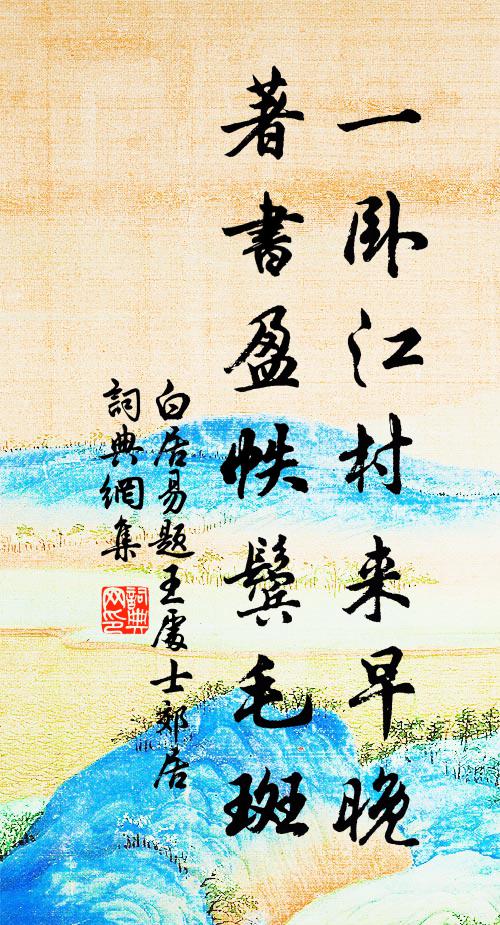 一卧江村来早晚
著書盈帙鬓毛斑
白居易题王處士郊居
詞典網集
詞典
网印